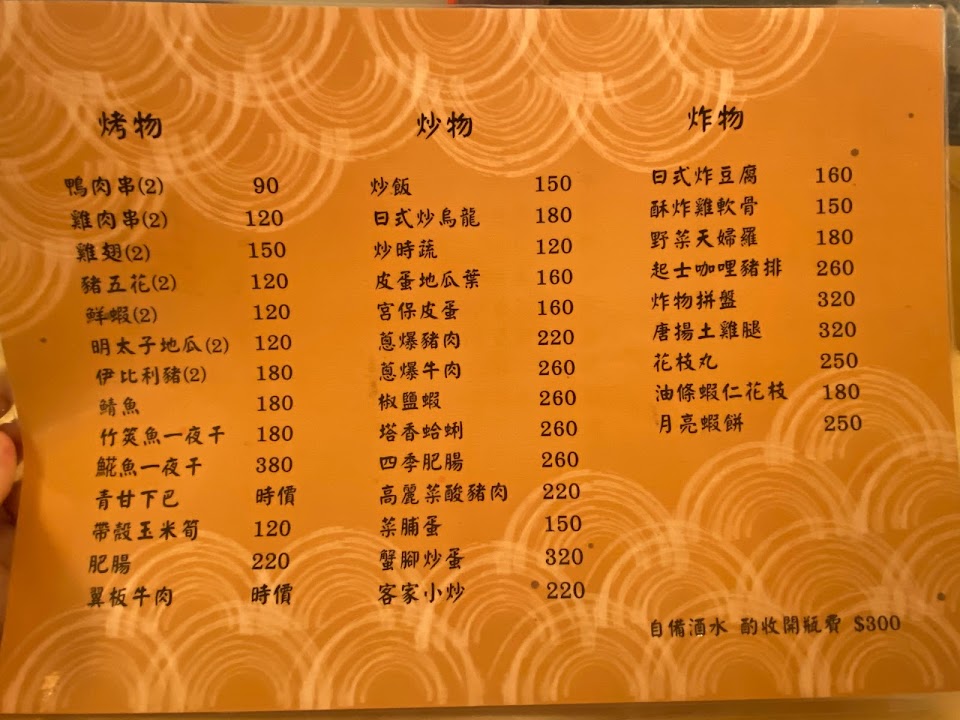 烤物
鴨肉串(2) 90
雞肉串(2) 120
雞翅(2) 150
豬五花(2) 120
鮮蝦(2) 120
明太子地瓜(2) 120
伊比利豬(2) 180
鯖魚 180
竹筴魚一夜干 180
𩸽魚一夜干 380
青甘下巴 時價
帶殼玉米筍 120
肥腸 220
翼板牛肉 時價
炒物
炒飯 150
日式炒烏龍 180
炒時蔬 120
皮蛋地瓜葉 160
宮保皮蛋 160
蔥爆豬肉 220
蔥爆牛肉 260
椒鹽蝦 260
塔香蛤蜊 260
四季肥腸 260
高麗菜酸豬肉 220
菜脯蛋 150
蟹腳炒蛋 320
客家小炒 220
炸物
日式炸豆腐 160
酥炸雞軟骨 150
野菜天婦羅 180
起士咖哩豬排 260
炸物拼盤 320
唐揚土雞腿 320
花枝丸 250
油條蝦仁花枝 180
月亮蝦餅 250
自備酒水 酌收開瓶費 $300